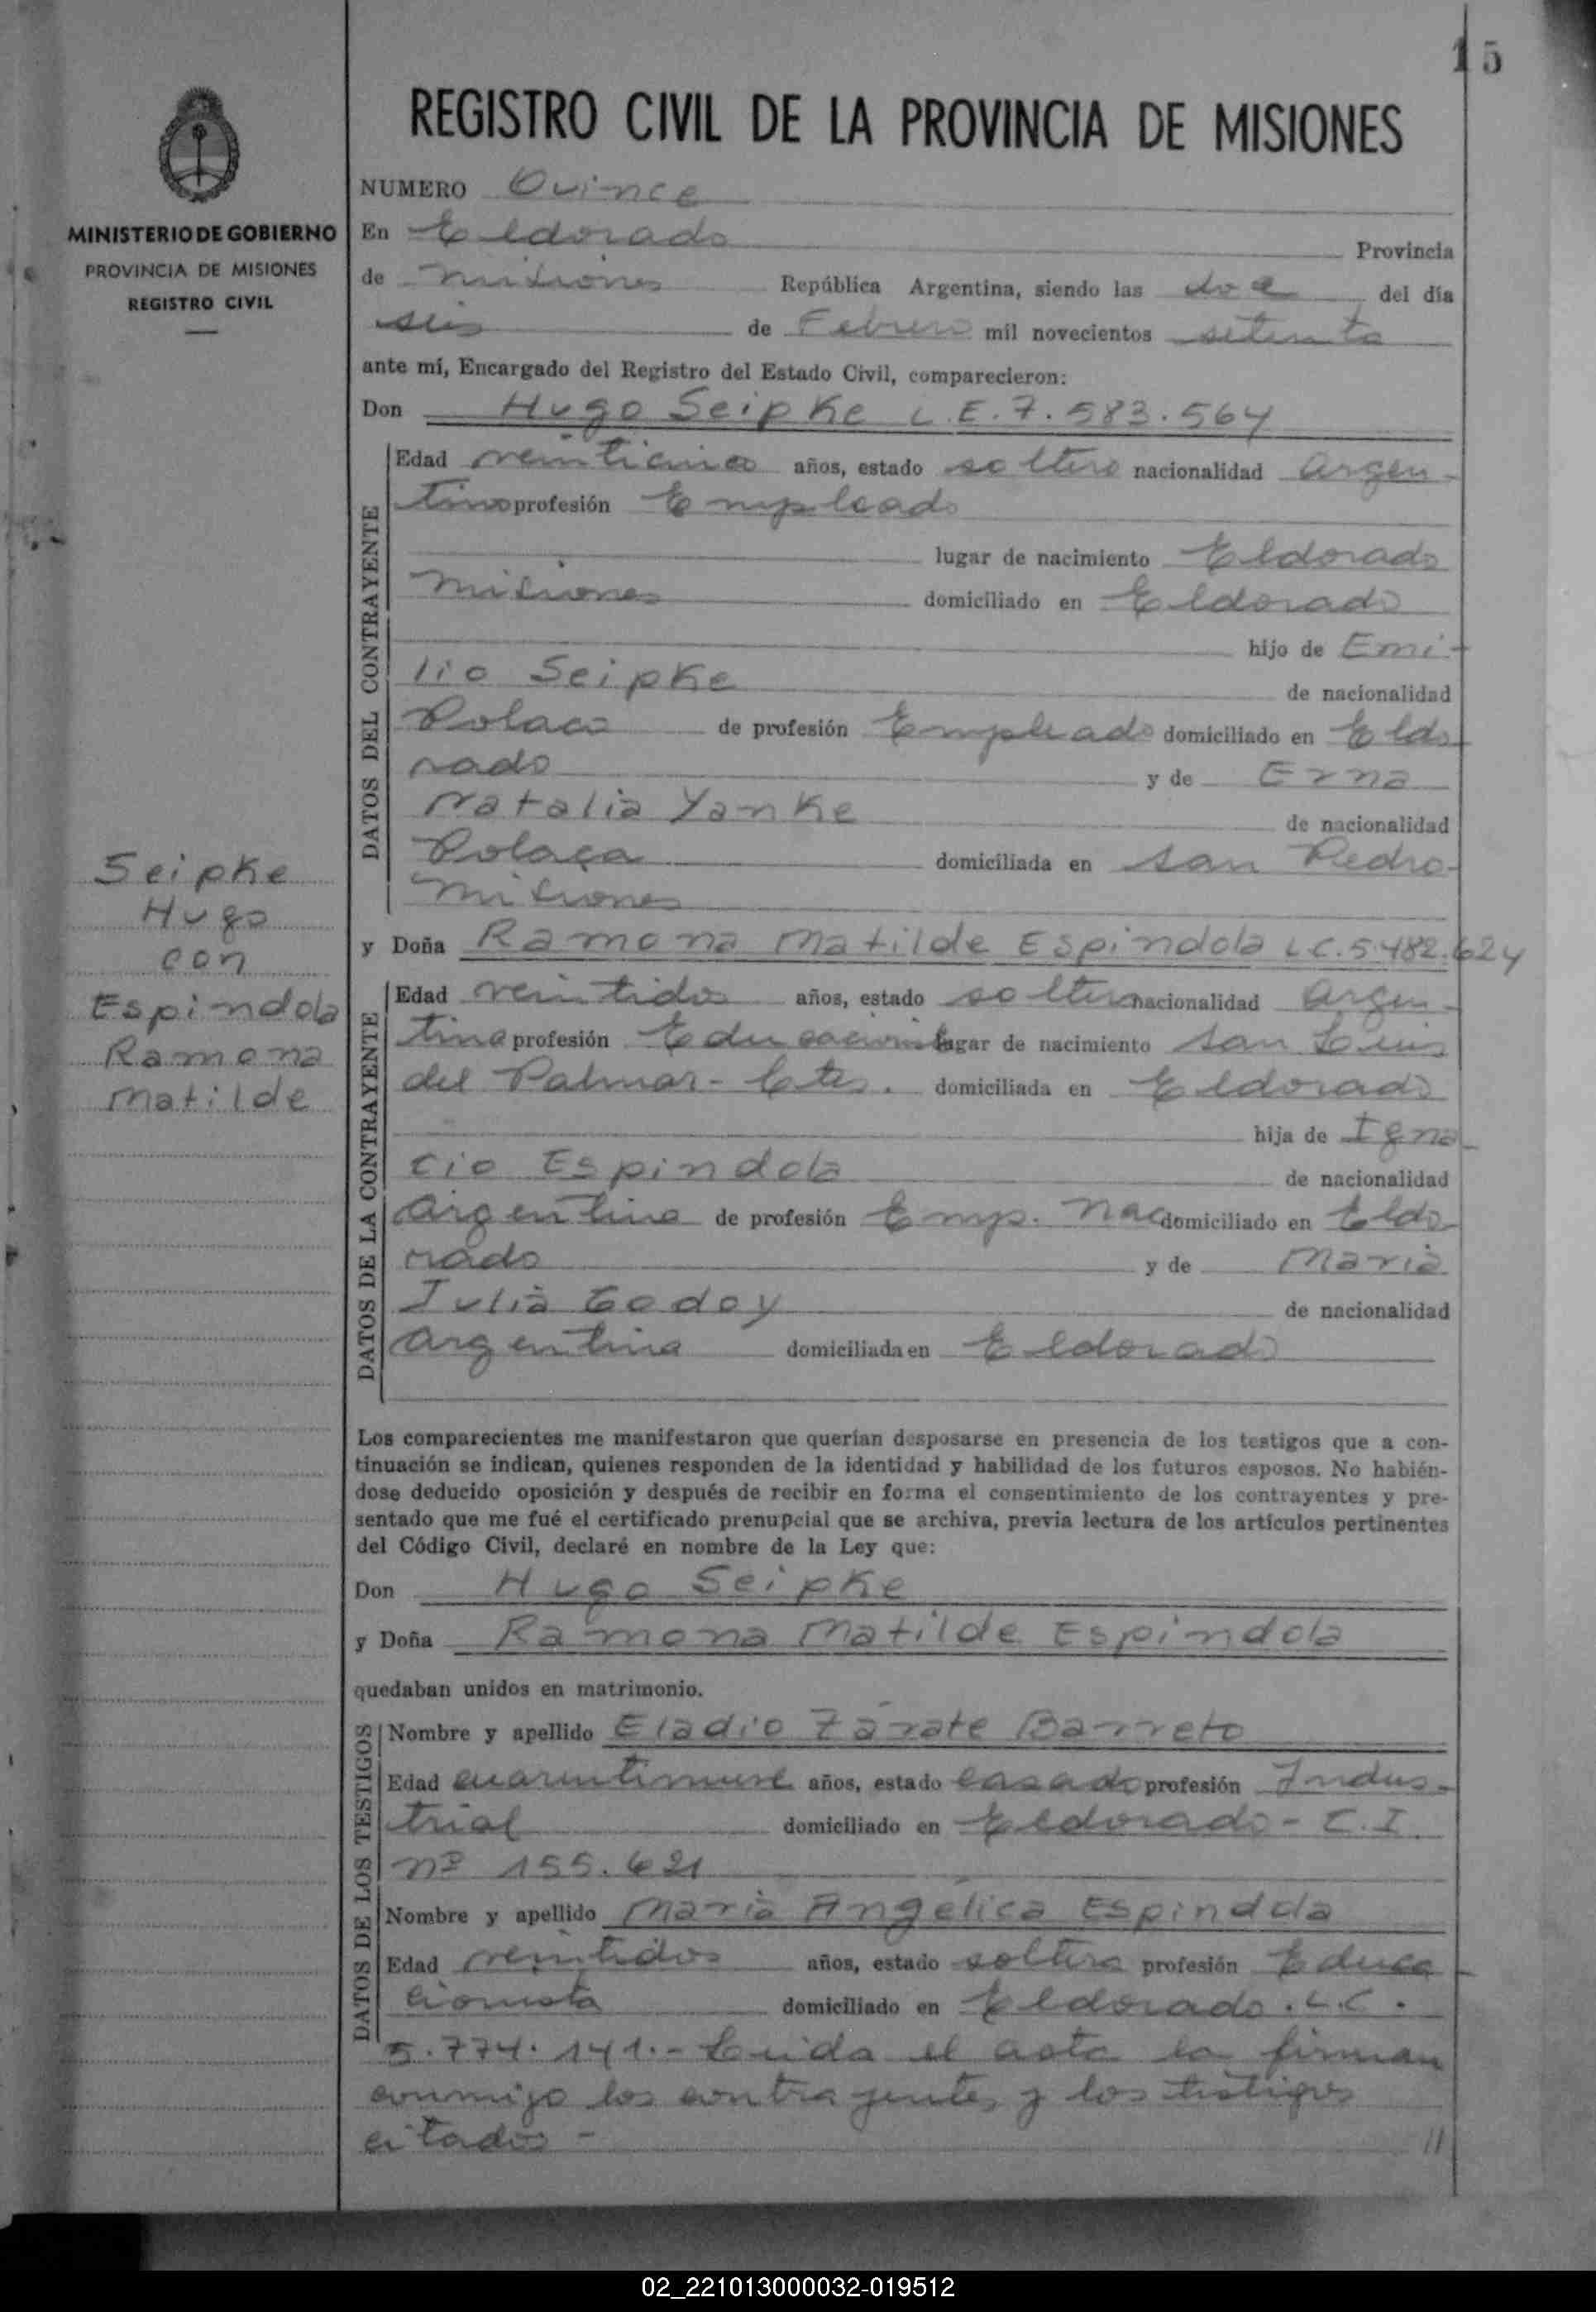 15
REGISTRO CIVIL DE LA PROVINCIA DE MISIONES
MINISTERIO DE GOBIERNO
PROVINCIA DE MISIONES
REGISTRO CIVIL
Seipke
Hugo
con
Espindola
Ramona
Matilde
NUMERO Quince
En Eldorado Provincia
de Misiones República Argentina, siendo las doce del día
seis de Febrero mil novecientos setenta
ante mí, Encargado del Registro del Estado Civil, comparecieron:
Don Hugo Seipke L.E. 7.583.564
DATOS DEL CONTRAYENTE
Edad veinticinco años, estado soltero nacionalidad argen-
tino profesión Empleado
lugar de nacimiento Eldorado
Misiones domiciliado en Eldorado
hijo de Emi-
lio Seipke de nacionalidad
Polaco de profesión Empleado domiciliado en Eldo
rado y de Erna
Natalia Yanke de nacionalidad
Polaca domiciliada en San Pedro-
Misiones
y Doña Ramona Matilde Espindola L.C. 5.482.624
DATOS DE LA CONTRAYENTE
Edad veintidos años, estado soltera nacionalidad argen-
tina profesión Educacionista lugar de nacimiento San Luis
del Palmar - Ctes. domiciliada en Eldorado
hija de Igna-
cio Espindola de nacionalidad
argentino de profesión Emp. Nac domiciliado en Eldo-
rado y de Maria
Julia Godoy de nacionalidad
argentina domiciliada en Eldorado
Los comparecientes me manifestaron que querían desposarse en presencia de los testigos que a con-
tinuación se indican, quienes responden de la identidad y habilidad de los futuros esposos. No habién-
dose deducido oposición y después de recibir en forma el consentimiento de los contrayentes y pre-
sentado que me fué el certificado prenupcial que se archiva, previa lectura de los artículos pertinentes
del Código Civil, declaré en nombre de la Ley que:
Don Hugo Seipke
y Doña Ramona Matilde Espindola
quedaban unidos en matrimonio.
DATOS DE LOS TESTIGOS
Nombre y apellido Eladio Zárate Barreto
Edad cuarentinueve años, estado casado profesión Indus-
trial domiciliado en Eldorado - C.I.
Nº 155.621
Nombre y apellido Maria Angélica Espindola
Edad veintidos años, estado soltera profesión Educa-
cionista domiciliado en Eldorado. L.C.
5.774.141.- Leida el acta la firman
conmigo los contrayentes y los testigos
citados - //
02_221013000032-019512